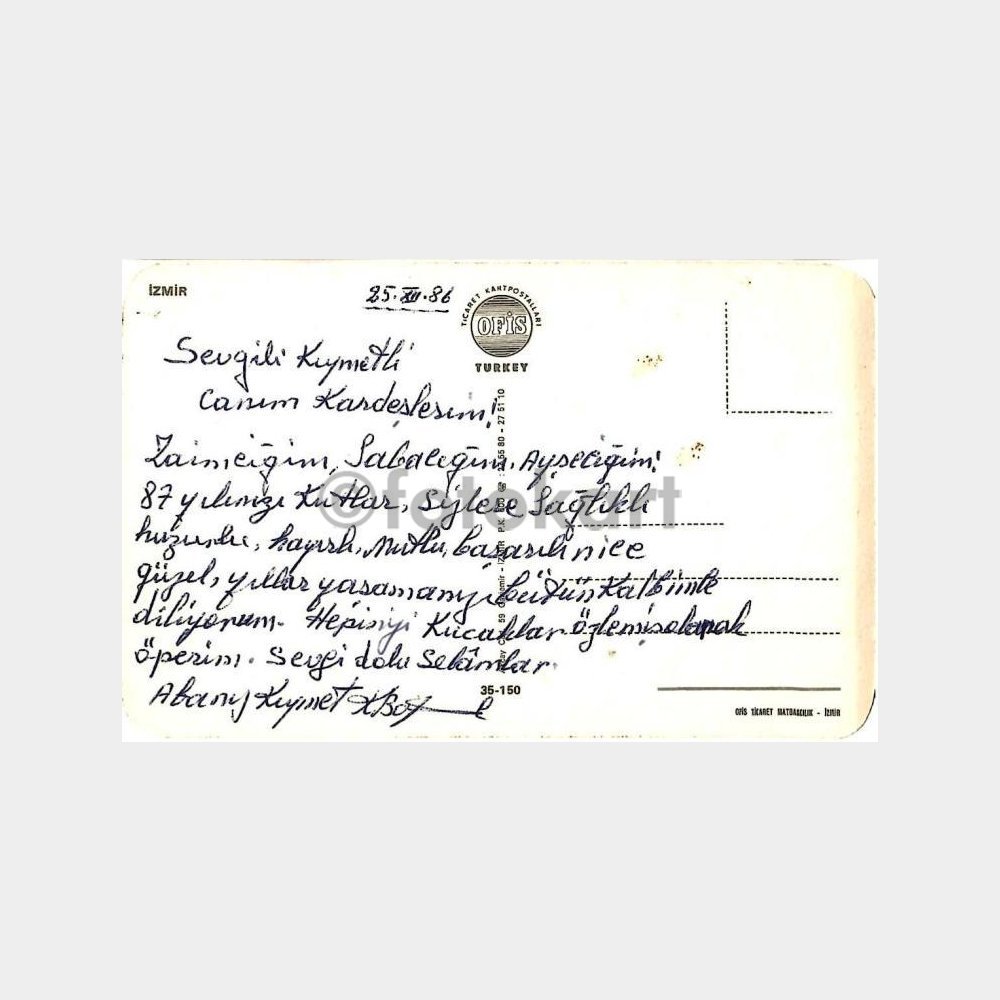 İZMİR
25.XII.86
TİCARET KARTPOSTALLARI
OFİS
TURKEY
Sevgili Kıymetli
Canım Kardeşlerim!
Zaimciğim, Sabacığım, Ayseciğim!
87 yılınızı Kutlar, sizlere Sağlıklı
huzurlu, hayırlı, Mutlu, basarılı nice
güzel, yıllar yasamanızı bütün Kalbimle
diliyorum. Hepinizi Kucaklar özlemis olarak
öperim. Sevgi dolu Selâmlar.
Abanız Kıymet
35-150
OFİS TİCARET MATBAACILIK - İZMİR
©fotokart